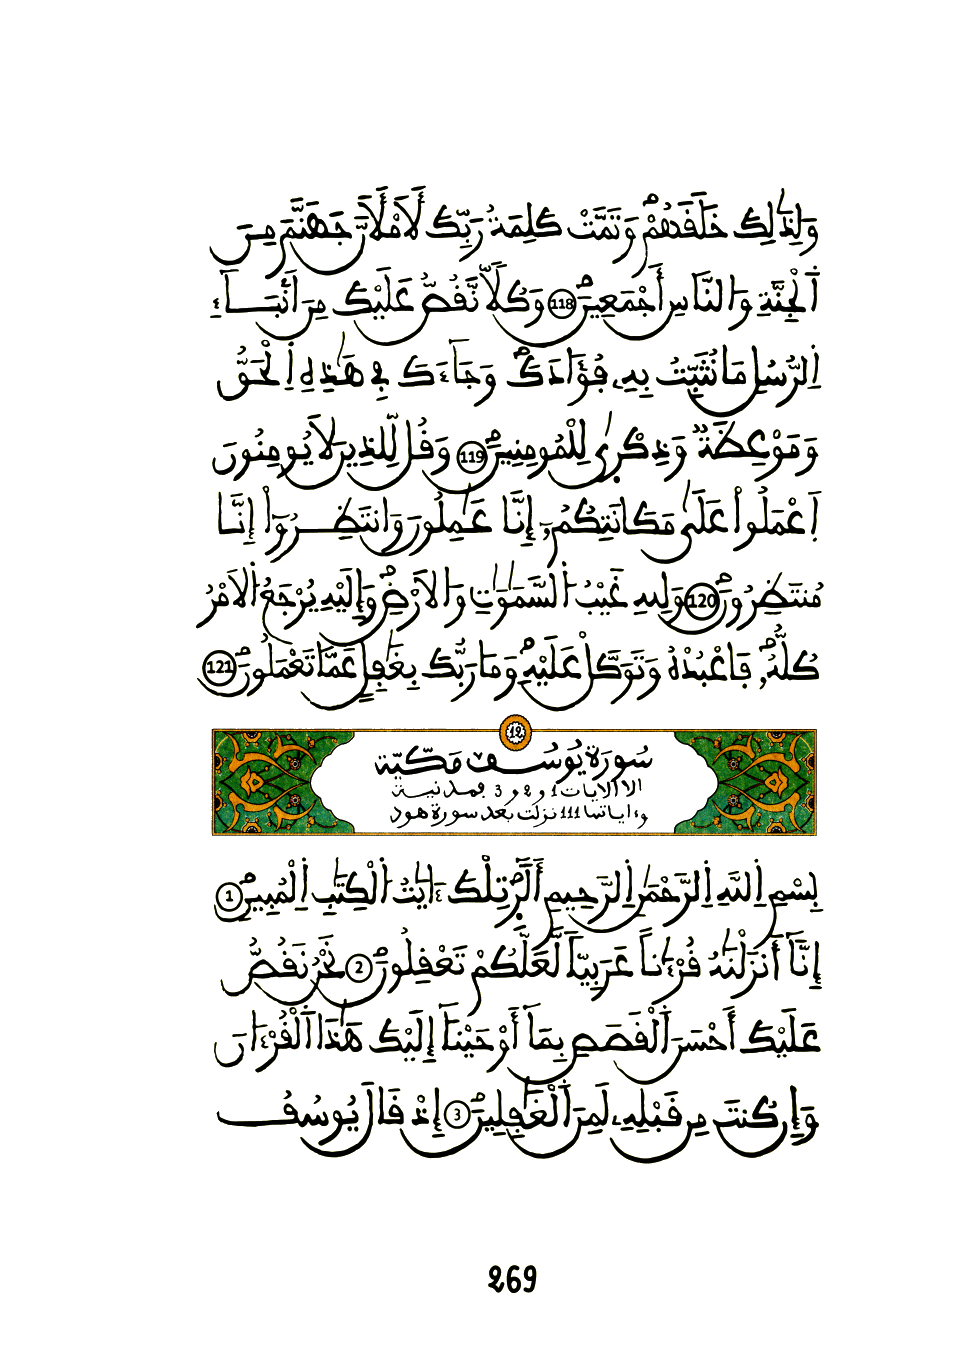 وَلِذَٰلِكَ خَلَقَهُمْ وَتَمَّتْ كَلِمَةُ رَبِّكَ لَأَمْلَأَنَّ جَهَنَّمَ مِنَ
اَ۬لْجِنَّةِ وَالنَّاسِ أَجْمَعِينَۖ 118 وَكُلّاٗ نَّقُصُّ عَلَيْكَ مِنَ اَنۢبَآءِ
اِ۬لرُّسُلِ مَا نُثَبِّتُ بِهِۦ فُؤَادَكَۖ وَجَآءَكَ فِے هَٰذِهِ اِ۬لْحَقُّ
وَمَوْعِظَةٞ وَذِكْر۪ىٰ لِلْمُومِنِينَۖ 119 وَقُل لِّلذِينَ لَا يُومِنُونَ
اَ۪عْمَلُواْ عَلَىٰ مَكَانَتِكُمُۥٓ إِنَّا عَٰمِلُونَ وَانتَظِرُوٓاْ إِنَّا
مُنتَظِرُونَۖ 120 وَلِلهِ غَيْبُ اُ۬لسَّمَٰوَٰتِ وَالَارْضِۖ وَإِلَيْهِ يُرْجَعُ اُ۬لَامْرُ
كُلُّهُۥۖ فَاعْبُدْهُ وَتَوَكَّلْ عَلَيْهِۖ وَمَا رَبُّكَ بِغَٰفِلٍ عَمَّا تَعْمَلُونَۖ 121
12
سُورَةُ يُوسُف مَكِّيَّة
الا الايات 1 و 2 و 3 فمدنية
وءاياتها 111 نزلت بعد سورة هود
بِسْمِ اِ۬للَّهِ اِ۬لرَّحْمَٰنِ اِ۬لرَّحِيمِ أَلَٓرۖ تِلْكَ ءَايَٰتُ اُ۬لْكِتَٰبِ اِ۬لْمُبِينِۖ 1
إِنَّآ أَنزَلْنَٰهُ قُرْءَٰناً عَرَبِيّاٗ لَّعَلَّكُمْ تَعْقِلُونَۖ 2 نَحْنُ نَقُصُّ
عَلَيْكَ أَحْسَنَ اَ۬لْقَصَصِ بِمَآ أَوْحَيْنَآ إِلَيْكَ هَٰذَا اَ۬لْقُرْءَانَ
وَإِن كُنتَ مِن قَبْلِهِۦ لَمِنَ اَ۬لْغَٰفِلِينَۖ 3 إِذْ قَالَ يُوسُفُ
269